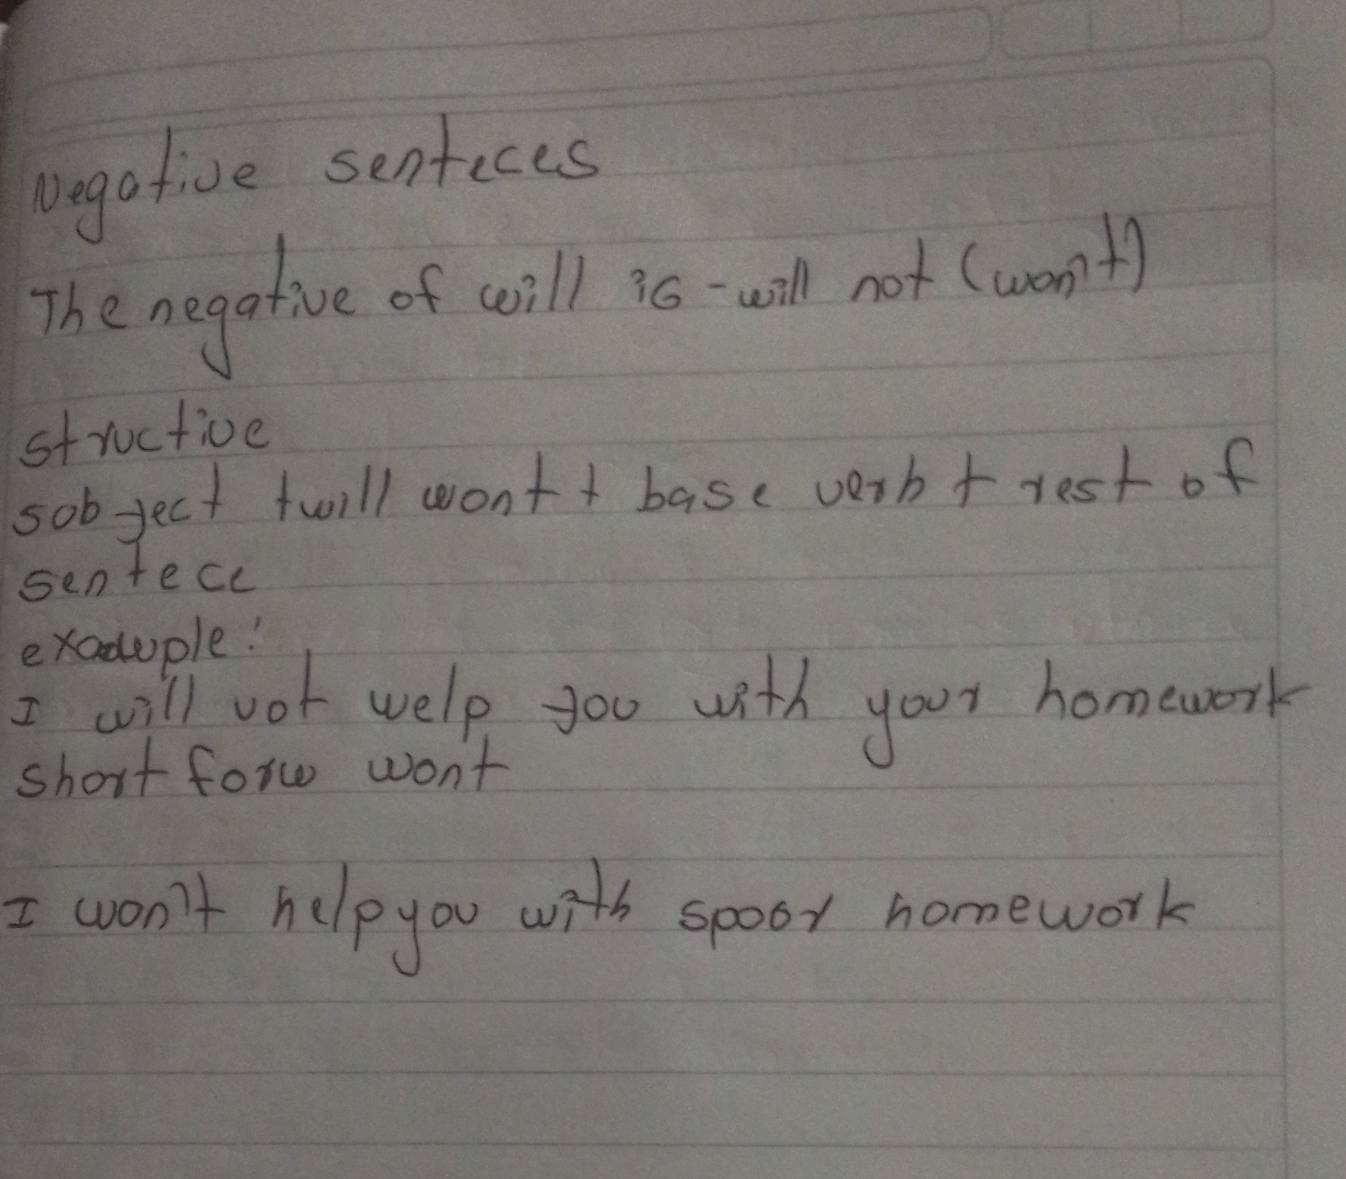 Negative senteces
The negative of will is - will not (won't)
structive
sobject + will wont + base verb + rest of
sentece
exawple:
I will vot welp you with your homework
short forw wont
I won't help you with spoor homework